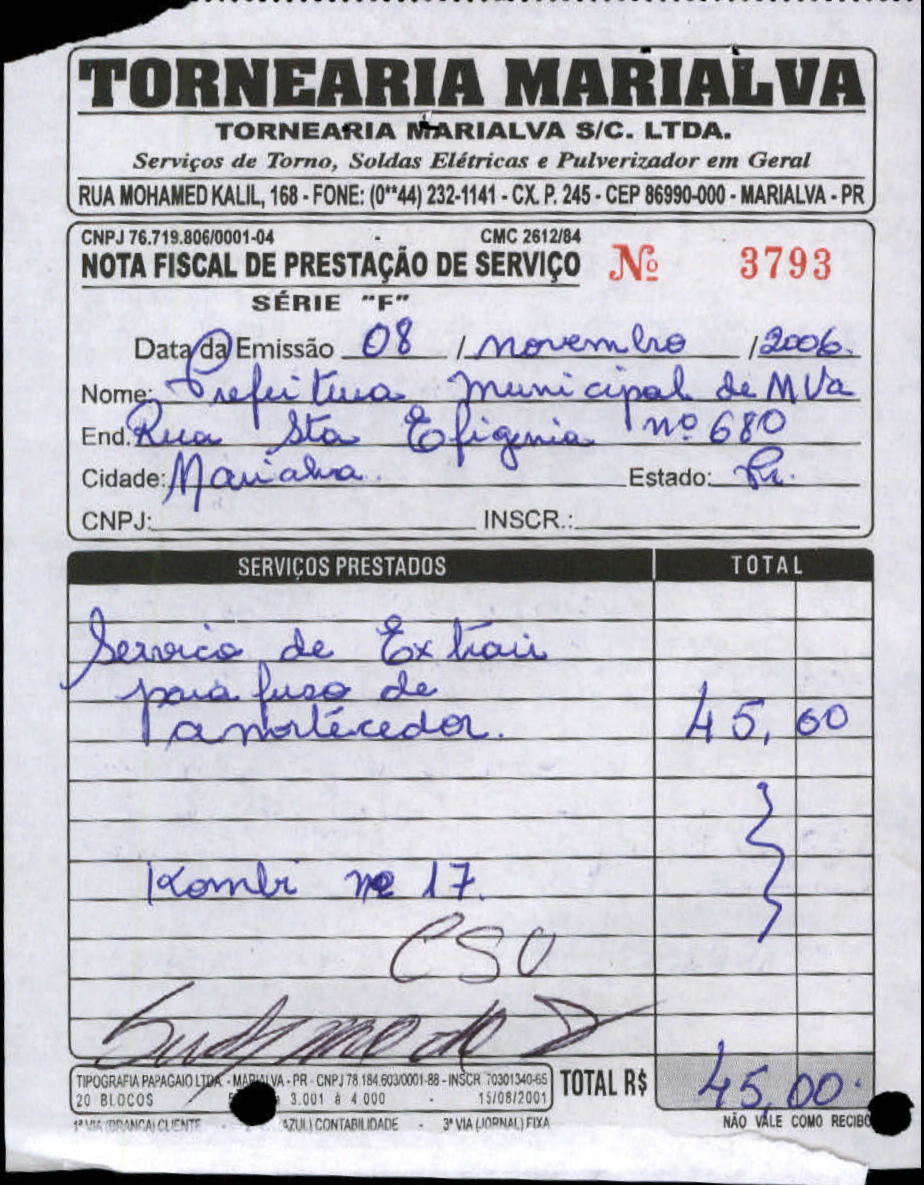 TORNEARIA MARIALVA
TORNEARIA MARIALVA S/C. LTDA.
Serviços de Torno, Soldas Elétricas e Pulverizador em Geral
RUA MOHAMED KALIL, 168 - FONE: (0**44) 232-1141 - CX. P. 245 - CEP 86990-000 - MARIALVA - PR
CNPJ 76.719.806/0001-04 CMC 2612/84
NOTA FISCAL DE PRESTAÇÃO DE SERVIÇO Nº 3793
SÉRIE "F"
Data da Emissão 08 / novembro / 2006.
Nome: Prefeitura municipal de MVa
End. Rua Sta Efigenia nº 680
Cidade: Marialva. Estado: Pr.
CNPJ: INSCR.:
SERVIÇOS PRESTADOS TOTAL
Servico de Extrair
parafuso de
amortecedor. 45,00
Kombi nº 17.
CSO
TIPOGRAFIA PAPAGAIO LTDA - MARIALVA - PR - CNPJ 78.184.603/0001-88 - INSCR 70301340-65
20 BLOCOS 3.001 à 4.000 - 15/08/2001
TOTAL R$ 45,00.
1ª VIA (BRANCA) CLIENTE - AZUL) CONTABILIDADE - 3ª VIA (JORNAL) FIXA
NÃO VALE COMO RECIBO